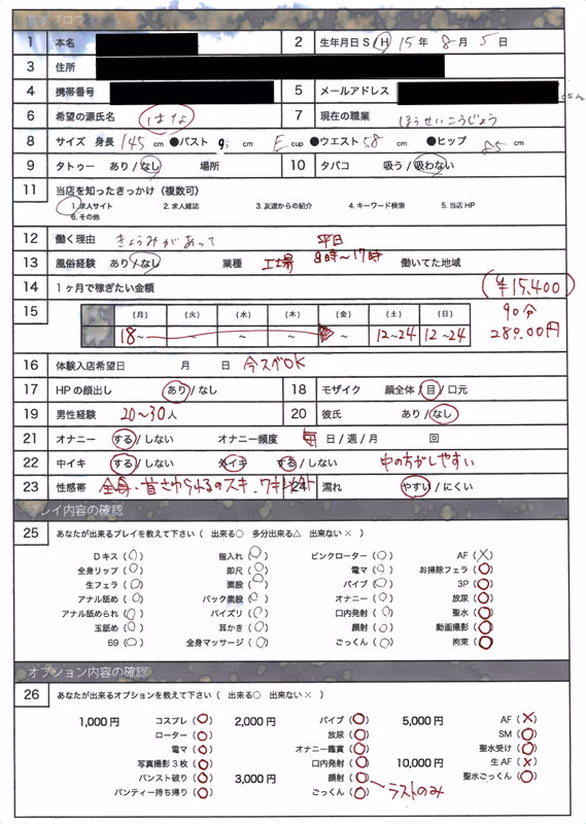 1 本名 2 生年月日 S / H 15年 8月 5日
3 住所
4 携帯番号 5 メールアドレス
6 希望の源氏名 はな 7 現在の職業 ほうせいこうじょう
8 サイズ 身長 145 cm ●バスト cm E cup ●ウエスト 58 cm ●ヒップ 85 cm
9 タトゥー あり / なし 場所 10 タバコ 吸う / 吸わない
11 当店を知ったきっかけ（複数可）
1. 求人サイト 2. 求人雑誌 3. 友達からの紹介 4. キーワード検索 5. 当店 HP
6. その他
12 働く理由 きょうみがあって 平日
13 風俗経験 あり / なし 業種 工場 8時〜17時 働いてた地域
14 1ヶ月で稼ぎたい金額 (¥15,400)
90分
15 （月） （火） （水） （木） （金） （土） （日）
18〜 12〜24 12〜24
16 体験入店希望日 月 日 今スグOK
17 HPの顔出し あり / なし 18 モザイク 顔全体 / 目 / 口元
19 男性経験 20〜30人 20 彼氏 あり / なし
21 オナニー する / しない オナニー頻度 毎 日 / 週 / 月 回
22 中イキ する / しない 外イキ する / しない 中の方がしやすい
23 性感帯 全身・首 24 濡れ やすい / にくい
プレイ内容の確認
25 あなたが出来るプレイを教えて下さい（ 出来る○ 多分出来る△ 出来ない× ）
Dキス（○） 指入れ（○） ピンクローター（○） AF（×）
全身リップ（○） 即尺（○） 電マ（○） お掃除フェラ（○）
生フェラ（○） 素股（○） バイブ（○） 3P（○）
アナル舐め（○） バック素股（○） オナニー（○） 放尿（○）
アナル舐められ（○） パイズリ（○） 口内発射（○） 聖水（○）
玉舐め（○） 耳かき（○） 顔射（○） 動画撮影（○）
69（○） 全身マッサージ（○） ごっくん（○） 拘束（○）
オプション内容の確認
26 あなたが出来るオプションを教えて下さい（ 出来る○ 出来ない× ）
1,000円 コスプレ（○） 2,000円 バイブ（○） 5,000円 AF（×）
ローター（○） 放尿（○） SM（○）
電マ（○） オナニー鑑賞（○） 聖水受け（○）
写真撮影3枚（○） 口内発射（○） 10,000円 生AF（×）
パンスト破り（○） 3,000円 顔射（○） 聖水ごっくん（○）
パンティー持ち帰り（○） ごっくん（○） ラストのみ